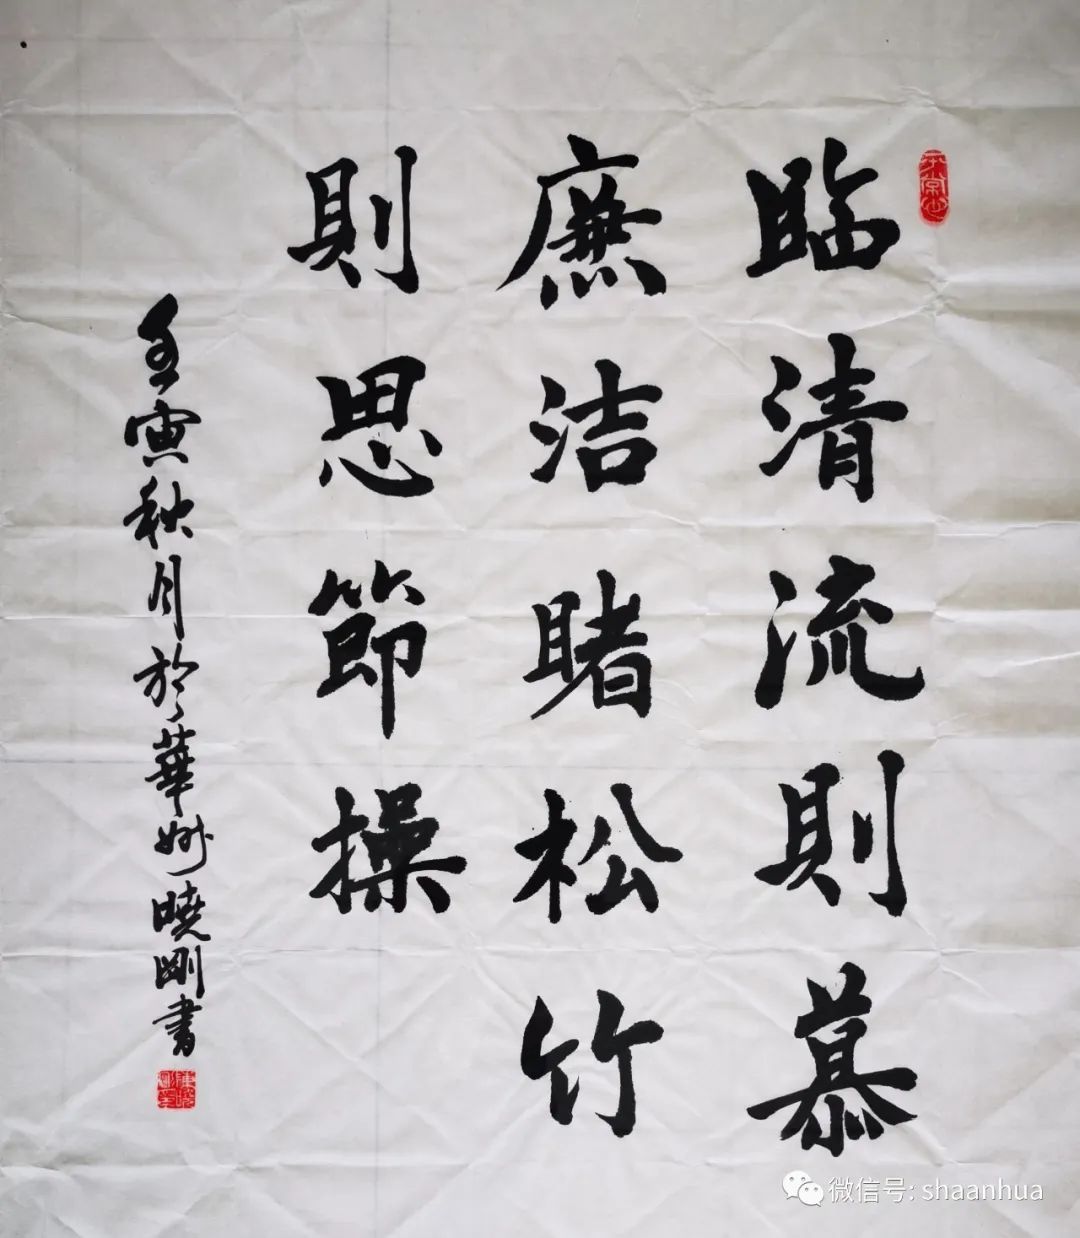 臨清流則慕
廉洁睹松竹
則思節操
壬寅秋月於華州曉剛書
微信号: shaanhua